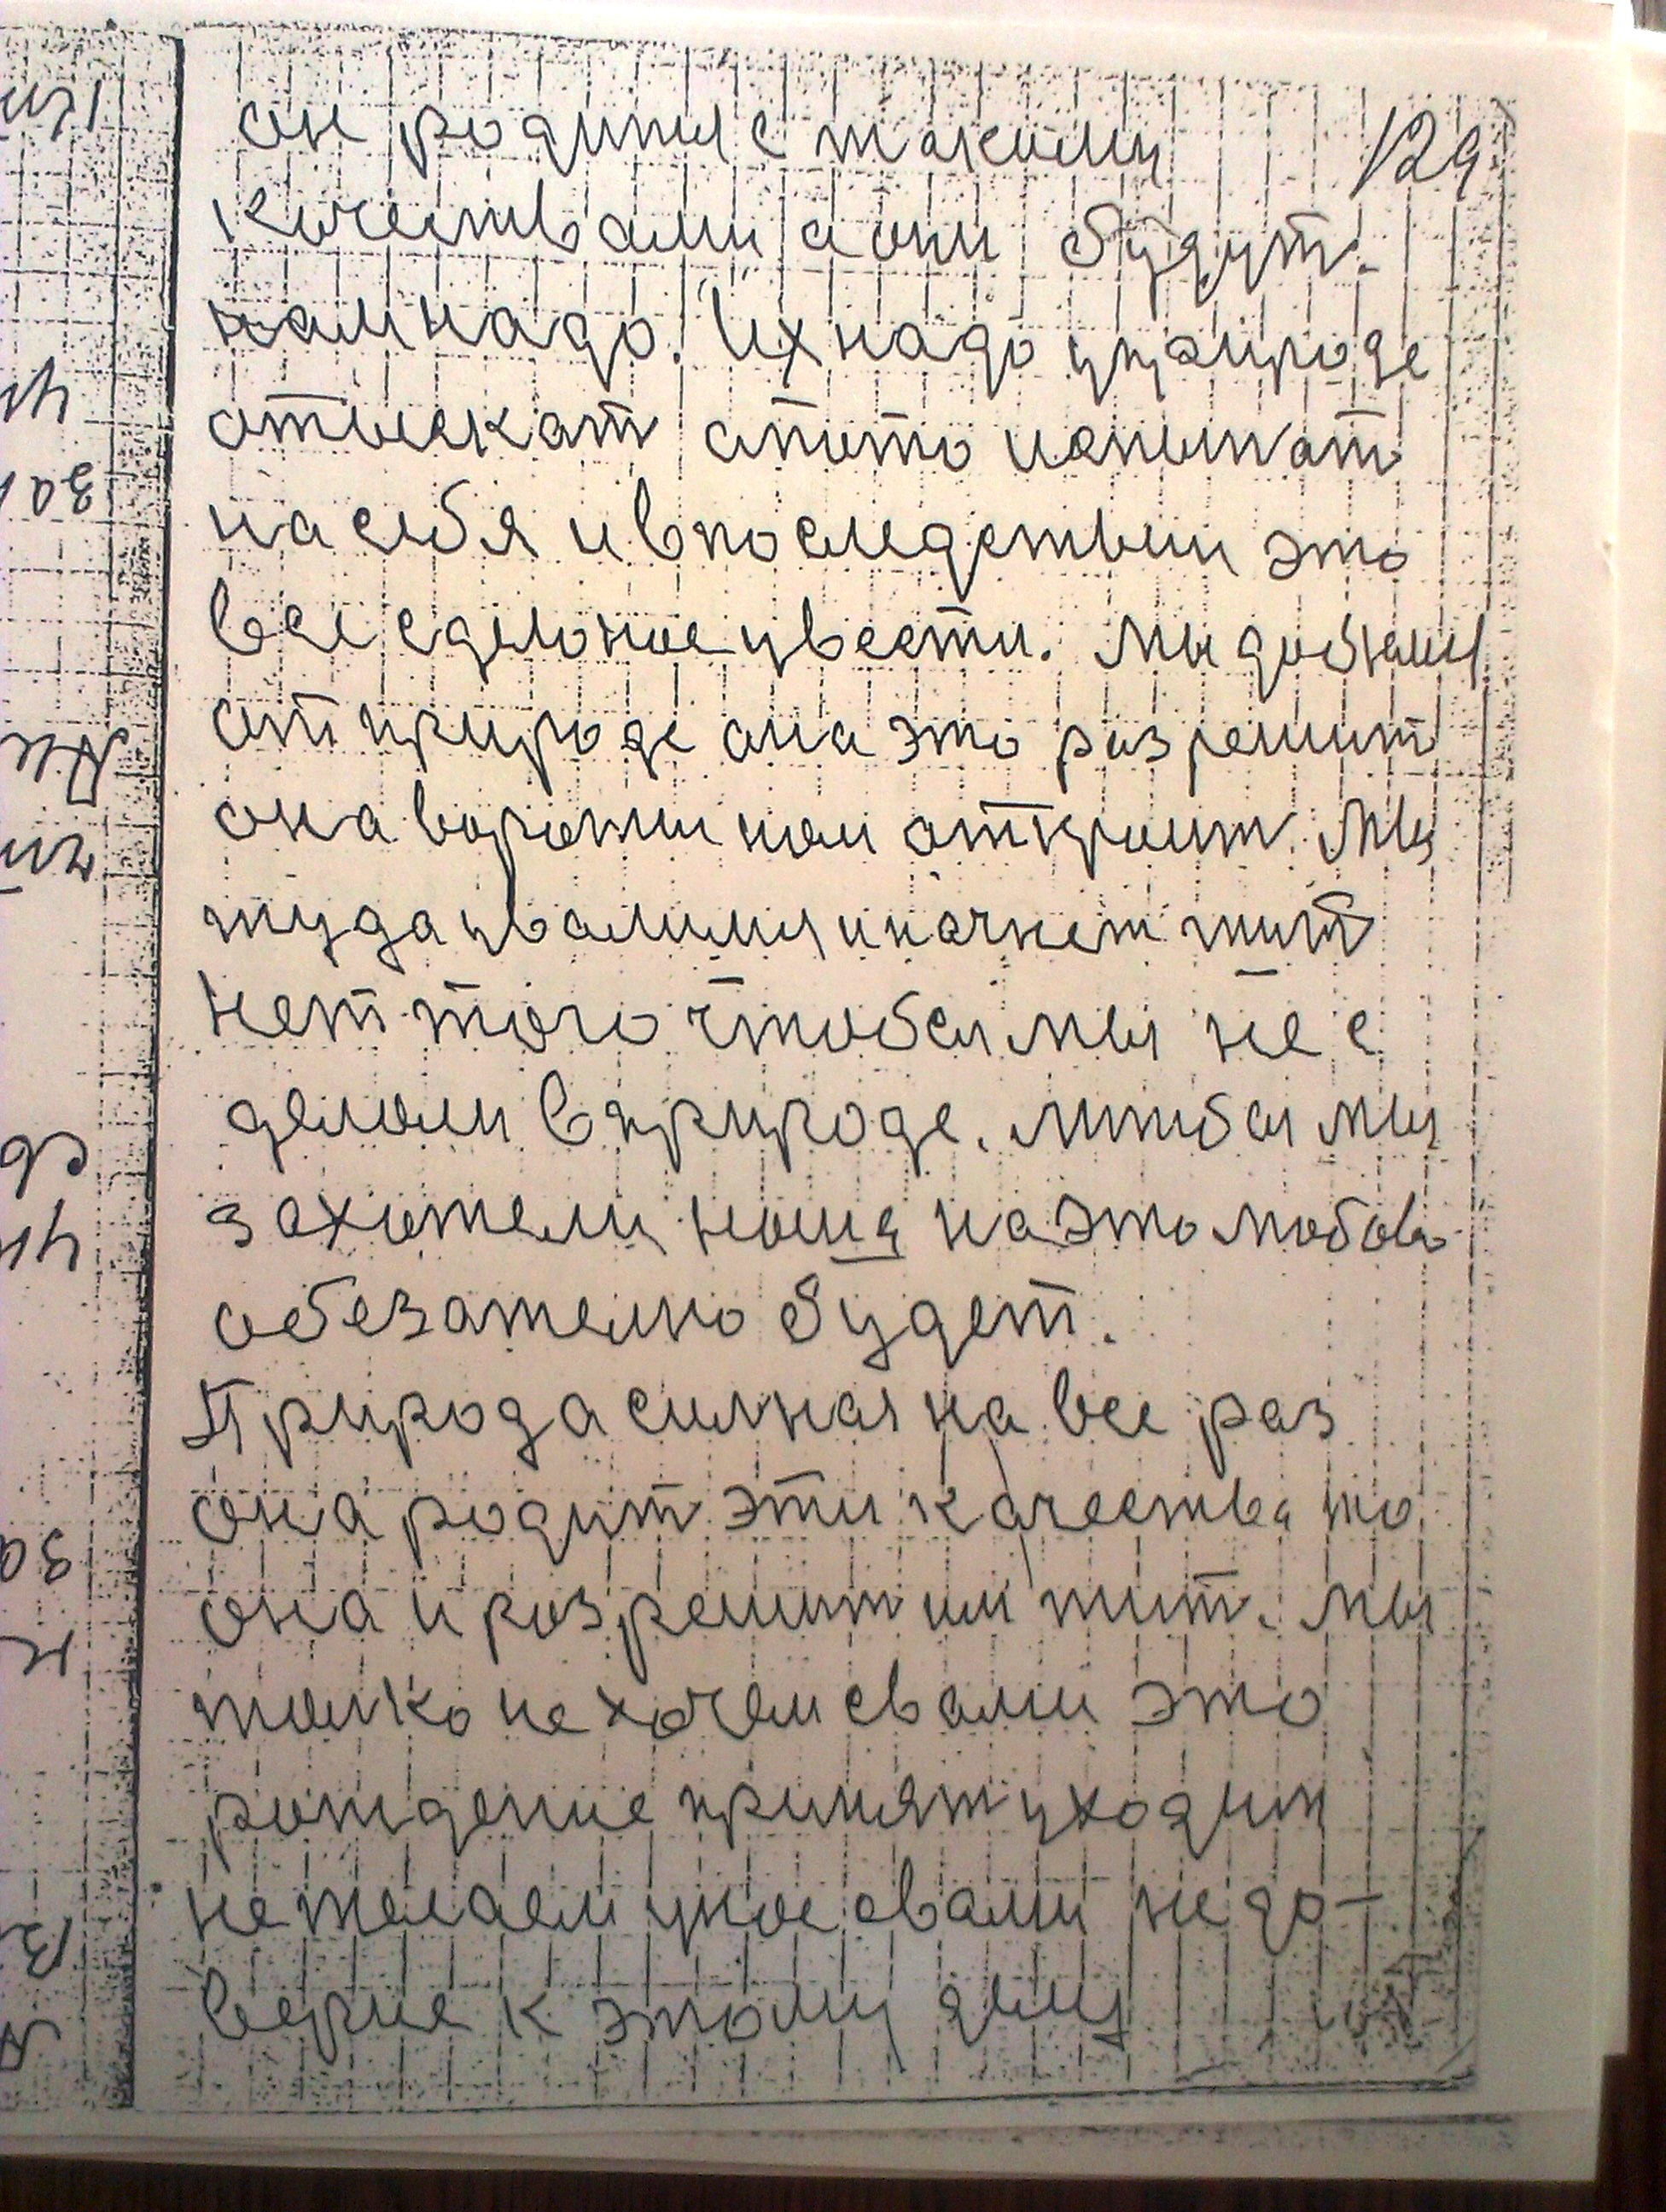 129
он родится с такими
качествами а они будут.
нам надо. Их надо у природе
отыскат а потом испытат
на себя и впоследствии это
все сделоное увести. Мы добєемся
от природе она это разрешит
она вороти нам откроит. Мы
туда ввалимся и начнем жит
нет того чтобы мы не с
делали в природе. Мы
захотели наша на это любовь
обезателно будет.
Природа силная на все раз
она родит эти качества то
она и розрешит им жит. Мы
толко не хочем свами это
рождение принят уходим
не желаем у нас свами недо-
верие к этому делу